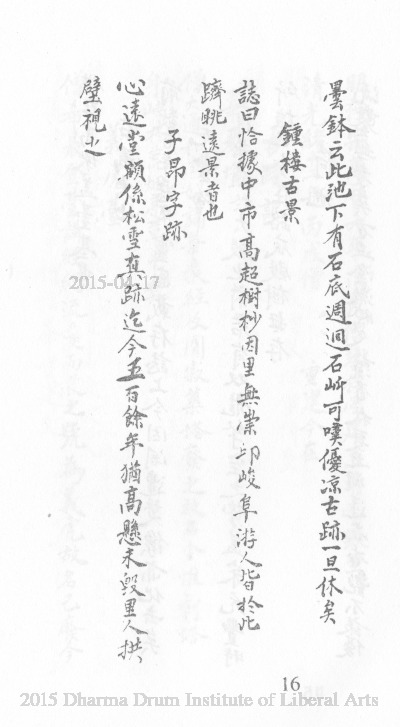 曇鉢云此池下有石底週迴石㪽可嘆優凉古跡一旦休矣
鍾樓古景
誌曰恰據中市高超樹杪因里無崇邱峻阜游人皆於此
躋眺遠景者也
子昂字跡
心遠堂額係松雪真跡迄今五百餘年猶高懸未毀里人拱
璧視之
2015-04-17
16
2015 Dharma Drum Institute of Liberal Arts